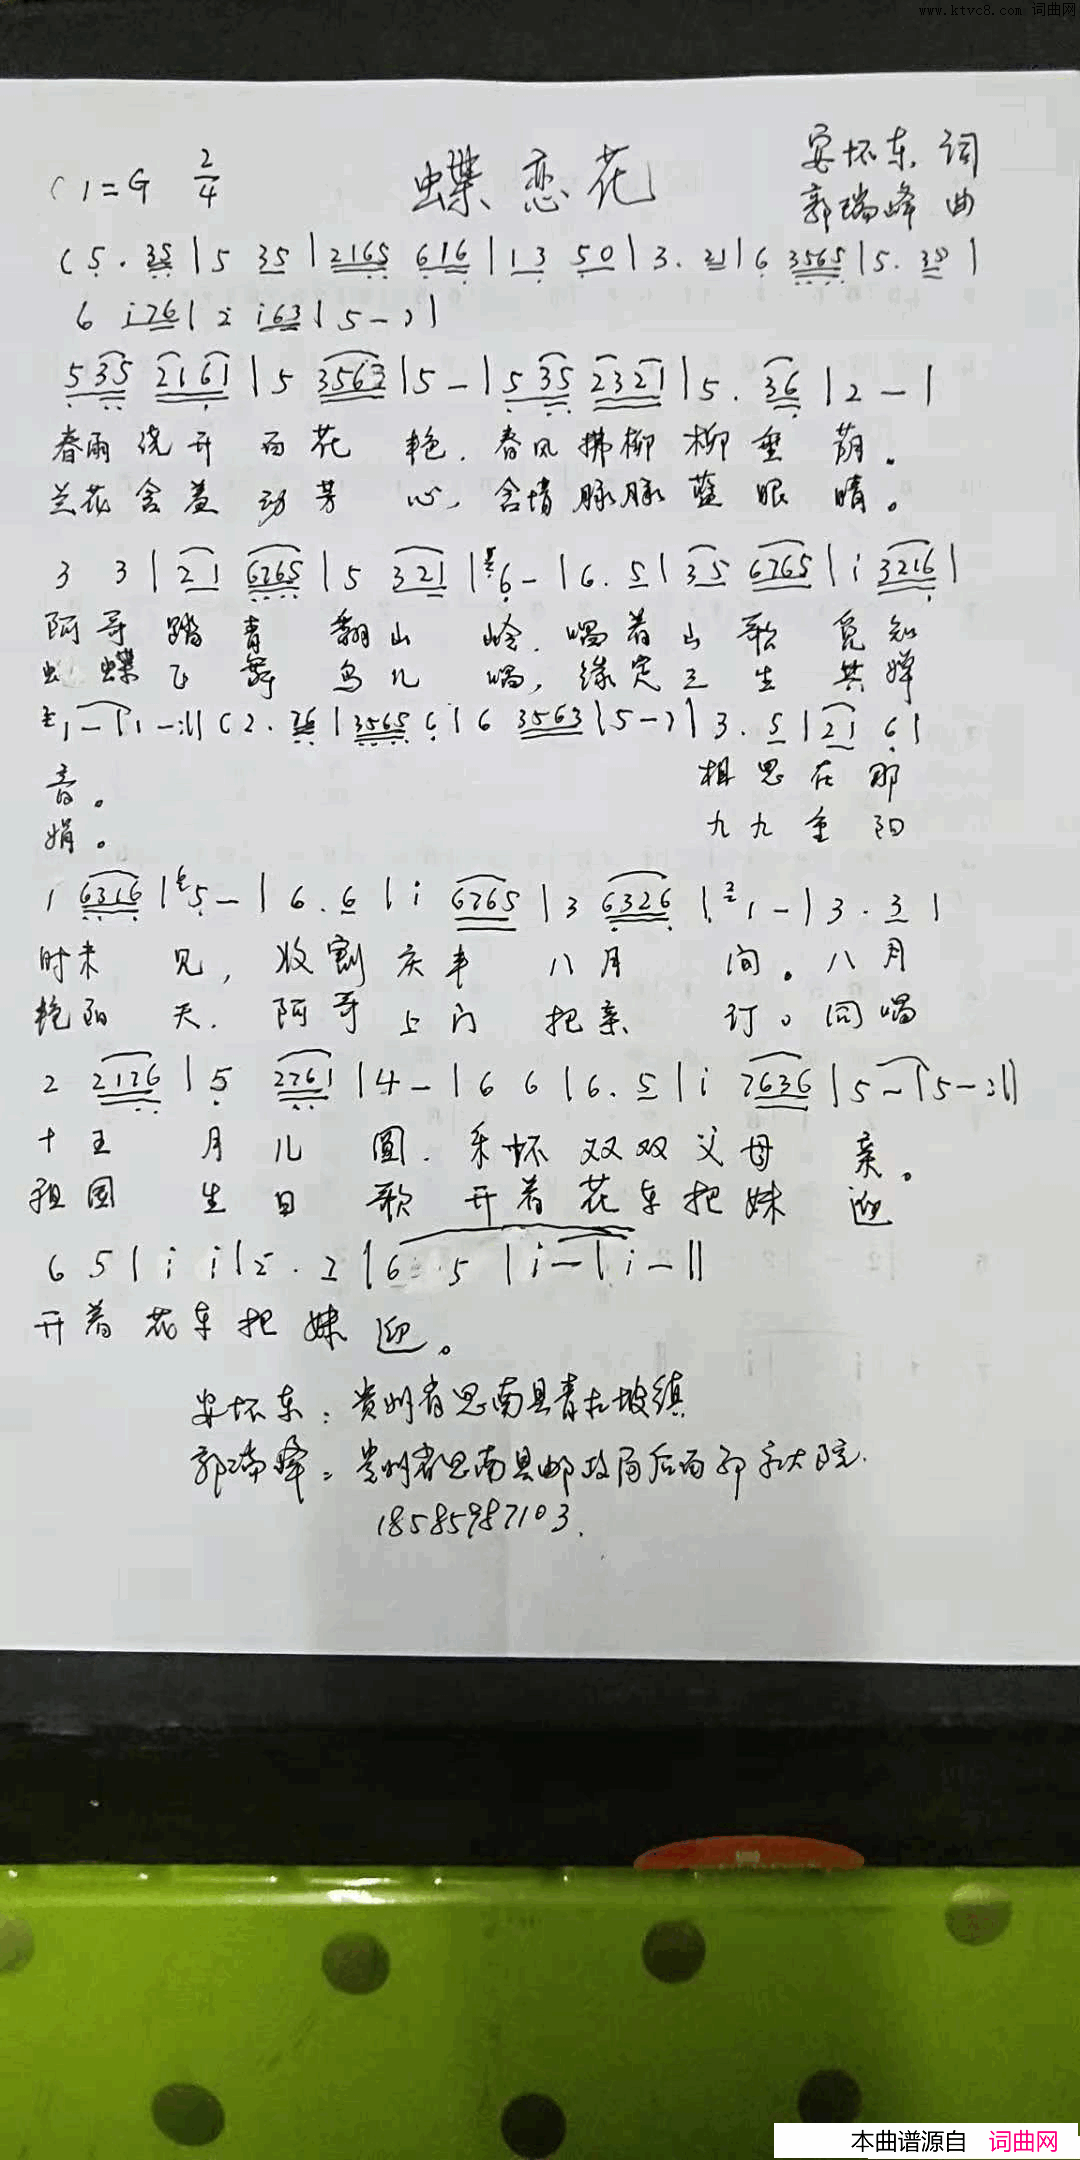 www.ktvc8.com 词曲网
1=G 2/4 蝶恋花 安怀东 词
郭瑞峰 曲
( 5 . 35 | 5 35 | 2165 616 | 13 50 | 3 . 21 | 6 3565 | 5 . 35 |
6 i76 | 2 i63 | 5 - ) |
535 2161 | 5 3563 | 5 - | 535 2321 | 5 . 36 | 2 - |
春雨绕开百花艳.春风拂柳柳垂荫。
兰花含羞动芳心,含情脉脉蓝眼睛。
3 3 | 21 6765 | 5 321 | 6 - | 6 . 5 | 35 6765 | i 3216 |
阿哥踏青翻山岭.唱着山歌觅知
蝶飞舞鸟儿唱,缘定三生共婵
1 - | 1 - :|| ( 2 . 76 | 3565 6 | 6 3563 | 5 - ) | 3 . 5 | 21 6 |
音。相思在那
娟。九九重阳
1 6316 | 5 - | 6 . 6 | i 6765 | 3 6326 | 1 - | 3 . 3 |
时未见,收割庆丰八月间。八月
艳阳天.阿哥上门把亲订。同唱
2 2176 | 5 2761 | 4 - | 6 6 | 6 . 5 | i 7636 | 5 - | 5 - :||
十五月儿圆.乐怀双双父母亲。
祖国生日歌开着花车把妹迎
6 5 | i i | 2 . 2 | 6 5 | i - | i - ||
开着花车把妹迎。
安怀东:贵州省思南县青杠坡镇
郭瑞峰:贵州省思南县邮政局后面大院.
18585987103.
本曲谱源自 词曲网